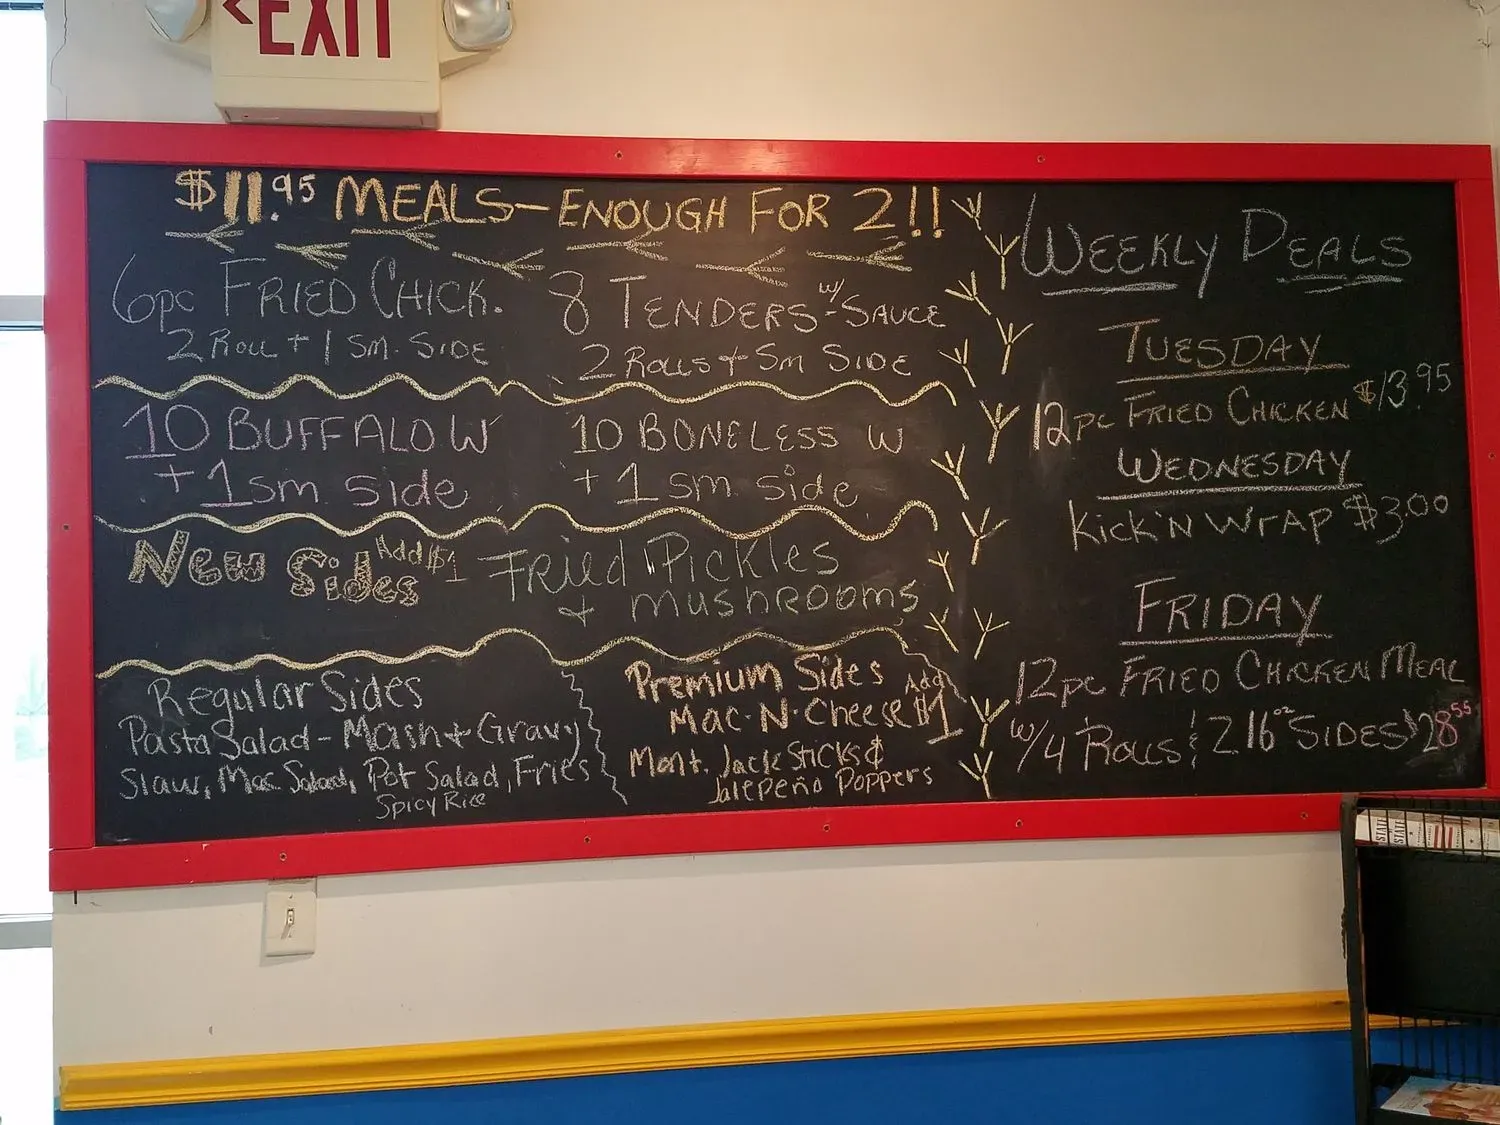 <EXIT
$11.95 MEALS-ENOUGH FOR 2!!
6pc FRIED CHICK.
2 ROLL + 1 SM. SIDE
8 TENDERS w/ SAUCE
2 ROLLS + SM SIDE
10 BUFFALO W
+ 1 sm side
10 BONELESS W
+ 1 sm side
New Sides Add $1
Fried Pickles
+ mushrooms
Regular Sides
Pasta Salad - Mash + Gravy
Slaw, Mac Salad, Pot Salad, Fries
Spicy Rice
Premium Sides
Add $1
Mac-N-Cheese
Mont. Jack Sticks &
Jalepeño Poppers
WEEKLY DEALS
TUESDAY
12pc FRIED CHICKEN $13.95
WEDNESDAY
Kick'N WrAP $3.00
FRIDAY
12pc FRIED CHICKEN MEAL
w/ 4 ROLLS & 2 16oz SIDES $28.55
STATE STATE